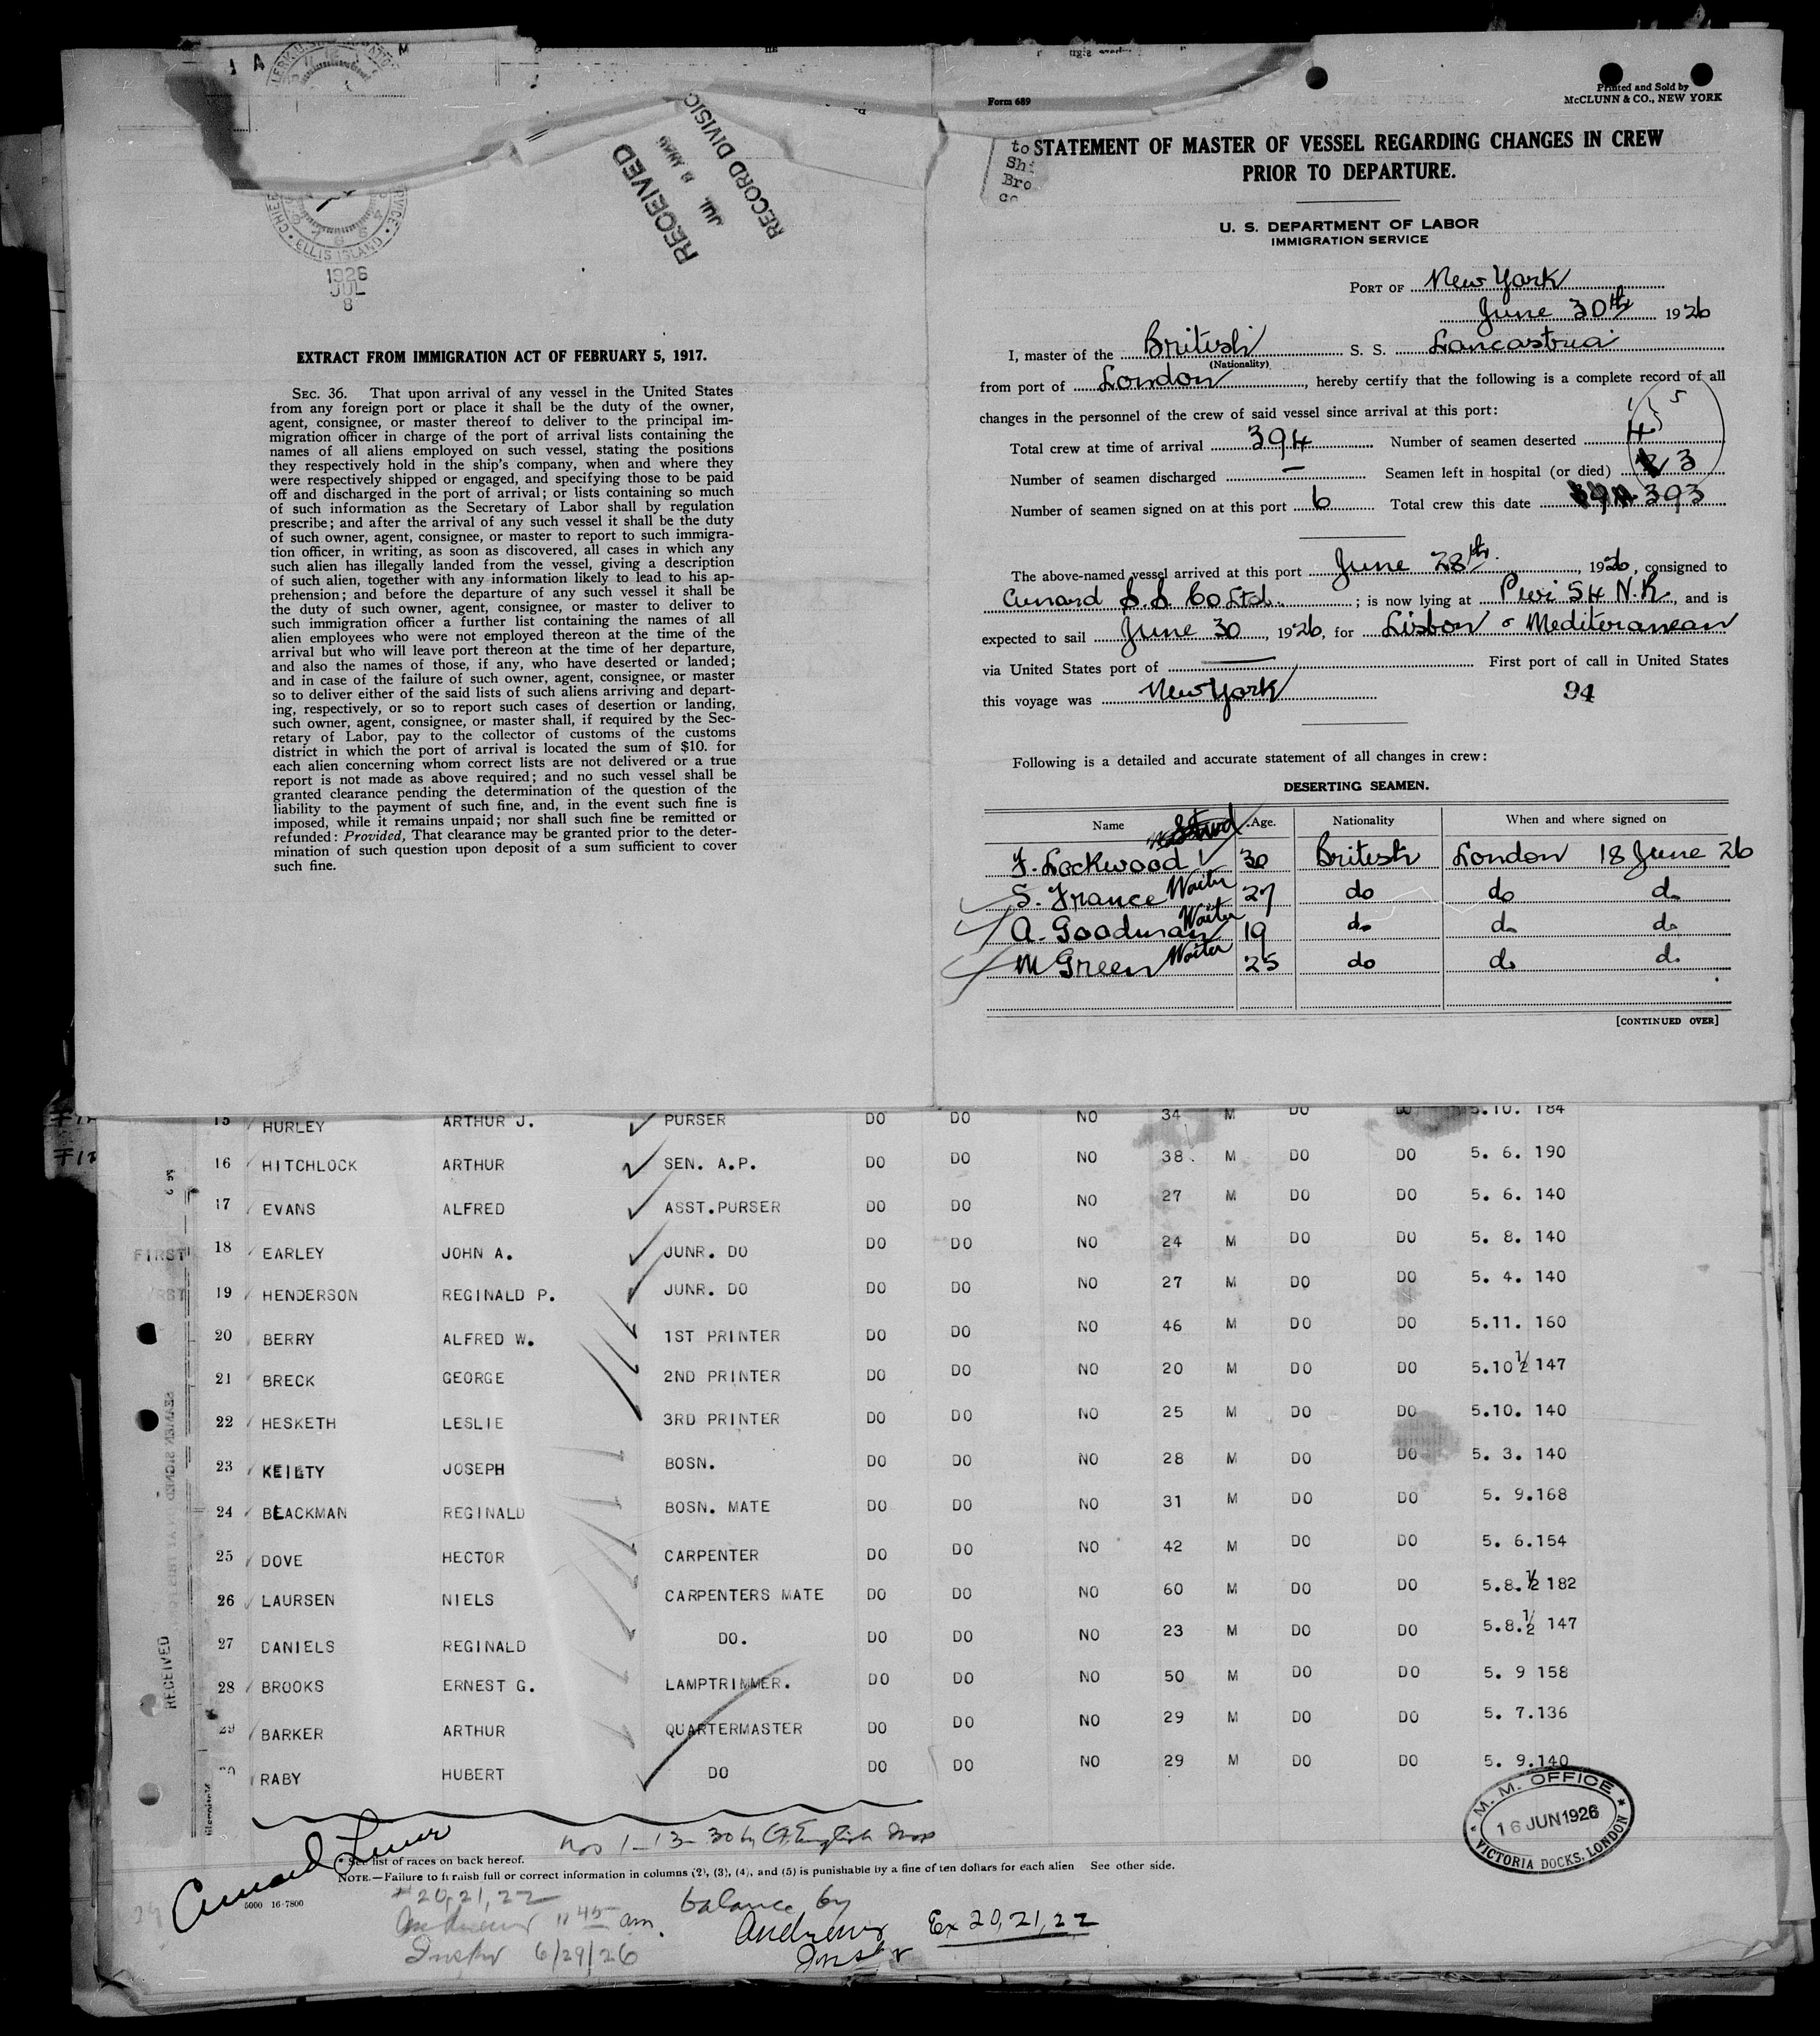 ELLIS ISLAND
1926
JUL
8
RECEIVED
JUL 8
RECORD DIVISIO
EXTRACT FROM IMMIGRATION ACT OF FEBRUARY 5, 1917.
SEC. 36. That upon arrival of any vessel in the United States
from any foreign port or place it shall be the duty of the owner,
agent, consignee, or master thereof to deliver to the principal im-
migration officer in charge of the port of arrival lists containing the
names of all aliens employed on such vessel, stating the positions
they respectively hold in the ship's company, when and where they
were respectively shipped or engaged, and specifying those to be paid
off and discharged in the port of arrival; or lists containing so much
of such information as the Secretary of Labor shall by regulation
prescribe; and after the arrival of any such vessel it shall be the duty
of such owner, agent, consignee, or master to report to such immigra-
tion officer, in writing, as soon as discovered, all cases in which any
such alien has illegally landed from the vessel, giving a description
of such alien, together with any information likely to lead to his ap-
prehension; and before the departure of any such vessel it shall be
the duty of such owner, agent, consignee, or master to deliver to
such immigration officer a further list containing the names of all
alien employees who were not employed thereon at the time of the
arrival but who will leave port thereon at the time of her departure,
and also the names of those, if any, who have deserted or landed;
and in case of the failure of such owner, agent, consignee, or master
so to deliver either of the said lists of such aliens arriving and depart-
ing, respectively, or so to report such cases of desertion or landing,
such owner, agent, consignee, or master shall, if required by the Sec-
retary of Labor, pay to the collector of customs of the customs
district in which the port of arrival is located the sum of $10. for
each alien concerning whom correct lists are not delivered or a true
report is not made as above required; and no such vessel shall be
granted clearance pending the determination of the question of the
liability to the payment of such fine, and, in the event such fine is
imposed, while it remains unpaid; nor shall such fine be remitted or
refunded: Provided, That clearance may be granted prior to the deter-
mination of such question upon deposit of a sum sufficient to cover
such fine.
Form 689
Printed and Sold by
McCLUNN & CO., NEW YORK
to
Sh
Bro
STATEMENT OF MASTER OF VESSEL REGARDING CHANGES IN CREW
PRIOR TO DEPARTURE.
U. S. DEPARTMENT OF LABOR
IMMIGRATION SERVICE
PORT OF New York
June 30th 1926
I, master of the British S. S. Lancastria
(Nationality)
from port of London, hereby certify that the following is a complete record of all
changes in the personnel of the crew of said vessel since arrival at this port:
1 5
Total crew at time of arrival 394 Number of seamen deserted 4
Number of seamen discharged — Seamen left in hospital (or died) 3
Number of seamen signed on at this port 6 Total crew this date 393
The above-named vessel arrived at this port June 28th, 1926, consigned to
Cunard S.S. Co Ltd.; is now lying at Pier 54 N.R., and is
expected to sail June 30, 1926, for Lisbon & Mediteranean
via United States port of — First port of call in United States
this voyage was New York
94
Following is a detailed and accurate statement of all changes in crew:
DESERTING SEAMEN.
Name Age. Nationality When and where signed on
F. Lockwood 30 British London 18 June 26
S. France Waiter 27 do do do
A. Goodman Waiter 19 do do do
M Green Waiter 25 do do do
[CONTINUED OVER]
15 HURLEY ARTHUR J. PURSER DO DO NO 34 M DO DO 5.10. 184
16 HITCHLOCK ARTHUR SEN. A.P. DO DO NO 38 M DO DO 5. 6. 190
17 EVANS ALFRED ASST.PURSER DO DO NO 27 M DO DO 5. 6. 140
FIRST
18 EARLEY JOHN A. JUNR. DO DO DO NO 24 M DO DO 5. 8. 140
19 HENDERSON REGINALD P. JUNR. DO DO DO NO 27 M DO DO 5. 4. 140
20 BERRY ALFRED W. 1ST PRINTER DO DO NO 46 M DO DO 5.11. 160
21 BRECK GEORGE 2ND PRINTER DO DO NO 20 M DO DO 5.10 1/2 147
22 HESKETH LESLIE 3RD PRINTER DO DO NO 25 M DO DO 5.10. 140
23 KEILTY JOSEPH BOSN. DO DO NO 28 M DO DO 5. 3. 140
24 BLACKMAN REGINALD BOSN. MATE DO DO NO 31 M DO DO 5. 9.168
25 DOVE HECTOR CARPENTER DO DO NO 42 M DO DO 5. 6.154
26 LAURSEN NIELS CARPENTERS MATE DO DO NO 60 M DO DO 5.8.1/2 182
27 DANIELS REGINALD DO. DO DO NO 23 M DO DO 5.8.1/2 147
28 BROOKS ERNEST G. LAMPTRIMMER. DO DO NO 50 M DO DO 5. 9 158
29 BARKER ARTHUR QUARTERMASTER DO DO NO 29 M DO DO 5. 7.136
RABY HUBERT DO DO DO NO 29 M DO DO 5. 9.140
RECEIVED
M. M. OFFICE
16 JUN 1926
VICTORIA DOCKS, LONDON
Cunard Line
Nos 1-13-30 by
See list of races on back hereof.
NOTE.—Failure to furnish full or correct information in columns (2), (3), (4), and (5) is punishable by a fine of ten dollars for each alien See other side.
5000 16-7800
#20,21,22
Andrews 11 45 am.
Inspr 6/29/26
balance by
Andrews Ex 20,21,22
Inspr